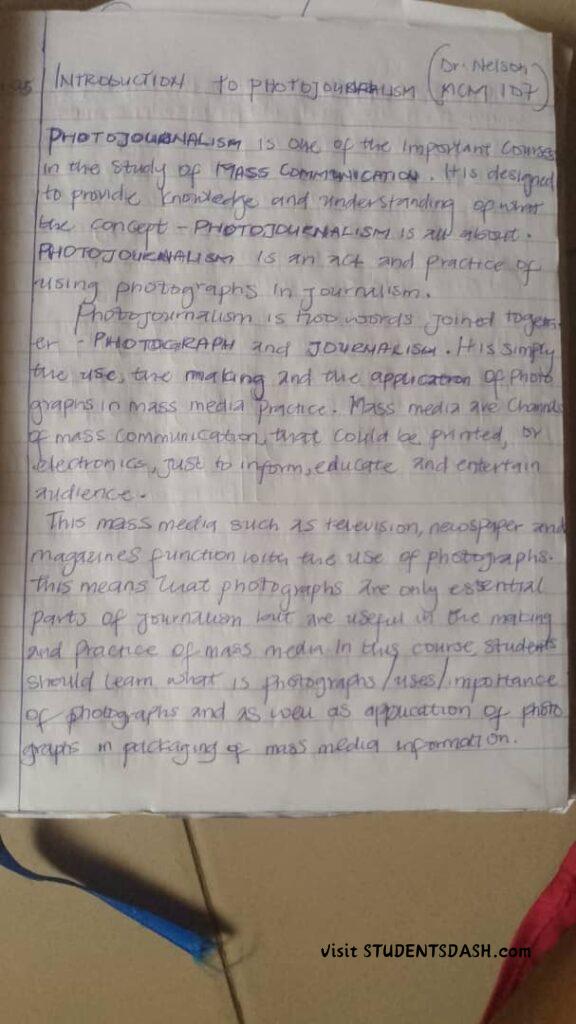 INTRODUCTION TO PHOTOJOURNALISM (Dr. Nelson
MCM 107)
PHOTOJOURNALISM is one of the important courses
in the study of MASS COMMUNICATION. It is designed
to provide knowledge and understanding of what
the concept - PHOTOJOURNALISM is all about.
PHOTOJOURNALISM is an act and practice of
using photographs in journalism.
Photojournalism is two words joined togeth-
er - PHOTOGRAPH and JOURNALISM. It is simply
the use, the making and the application of photo
graphs in mass media practice. Mass media are channels
of mass communication, that could be printed, or
electronics, just to inform, educate and entertain
audience.
This mass media such as television, newspaper and
magazines function with the use of photographs.
This means that photographs are only essential
parts of journalism but are useful in the making
and practice of mass media. In this course, students
should learn what is photographs/uses/importance
of photographs and as well as application of photo
graphs in packaging of mass media information.
visit STUDENTSDASH.com